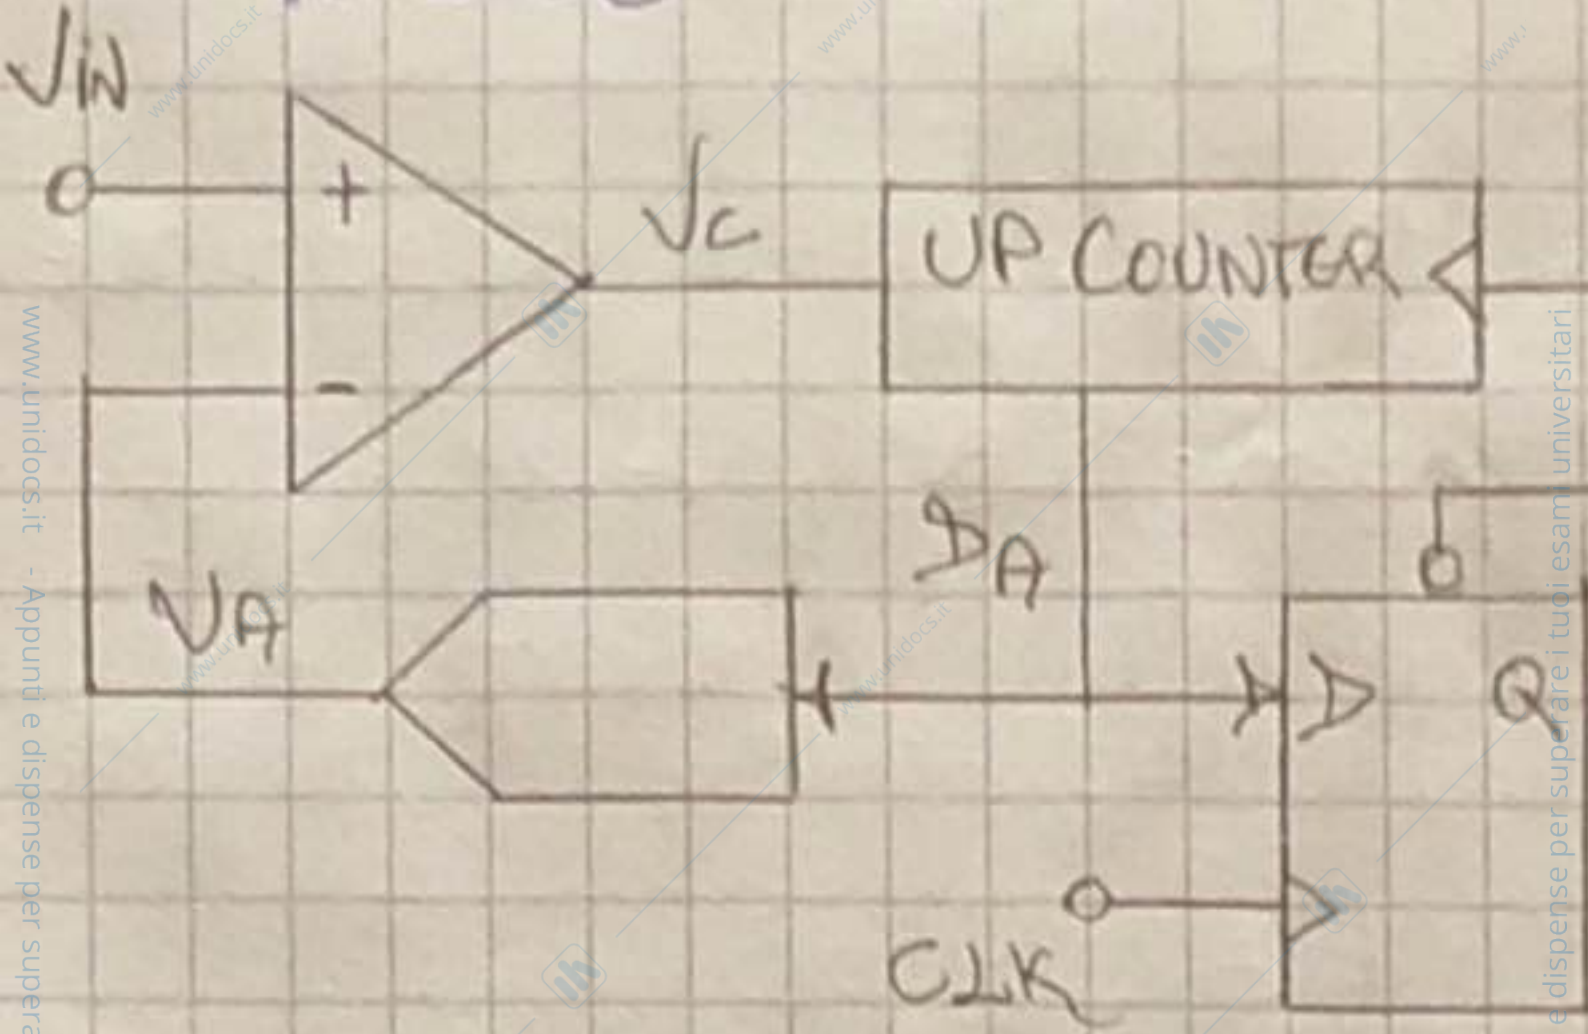 VIN
+
VC
UP COUNTER
-
DA
VA
D
Q
CLK
www.unidocs.it
www.unidocs.it - Appunti e dispense per supera
e dispense per superare i tuoi esami universitari.
www.unidocs.it
www.unidocs.it